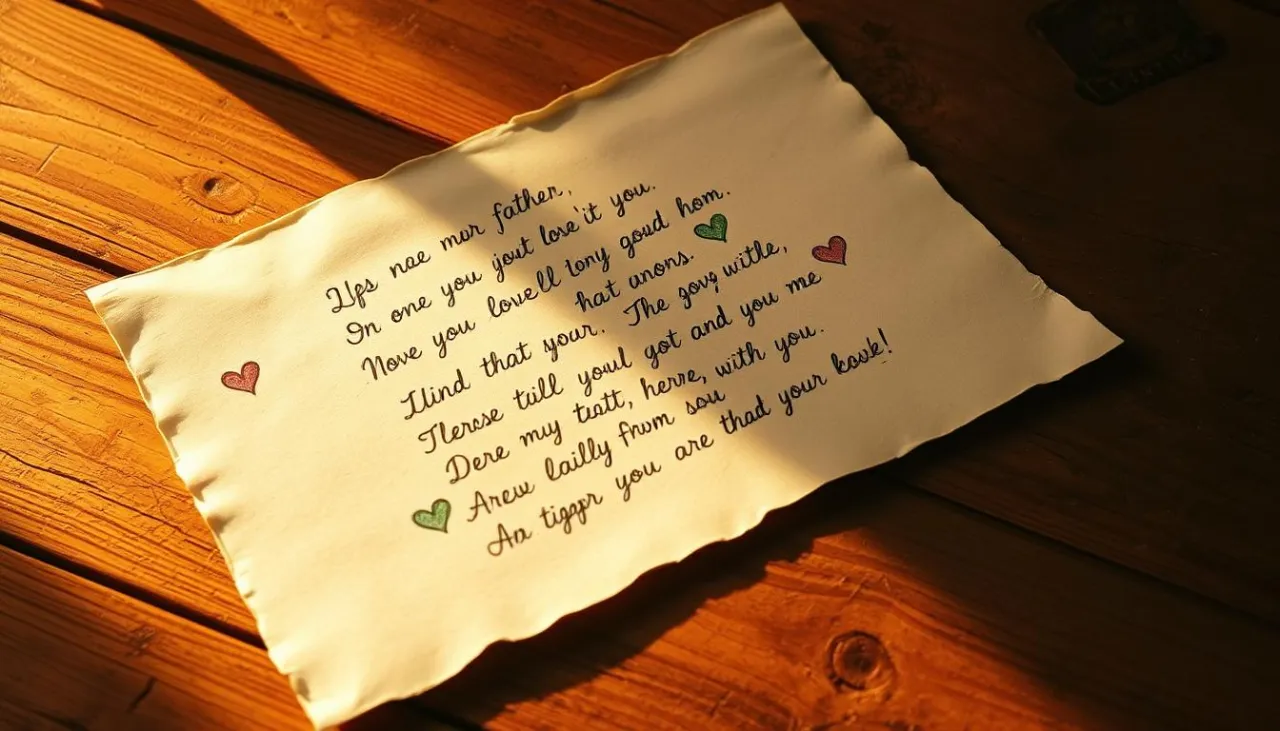 nae mur father,
In one you yout lose'it you.
Nove you lovell lony goud hom.
hat anons.
Ilind that your. The withe,
till youl got and you me
Dere muy tuatt, herre, with you.
lailly from sou
An you are thad your